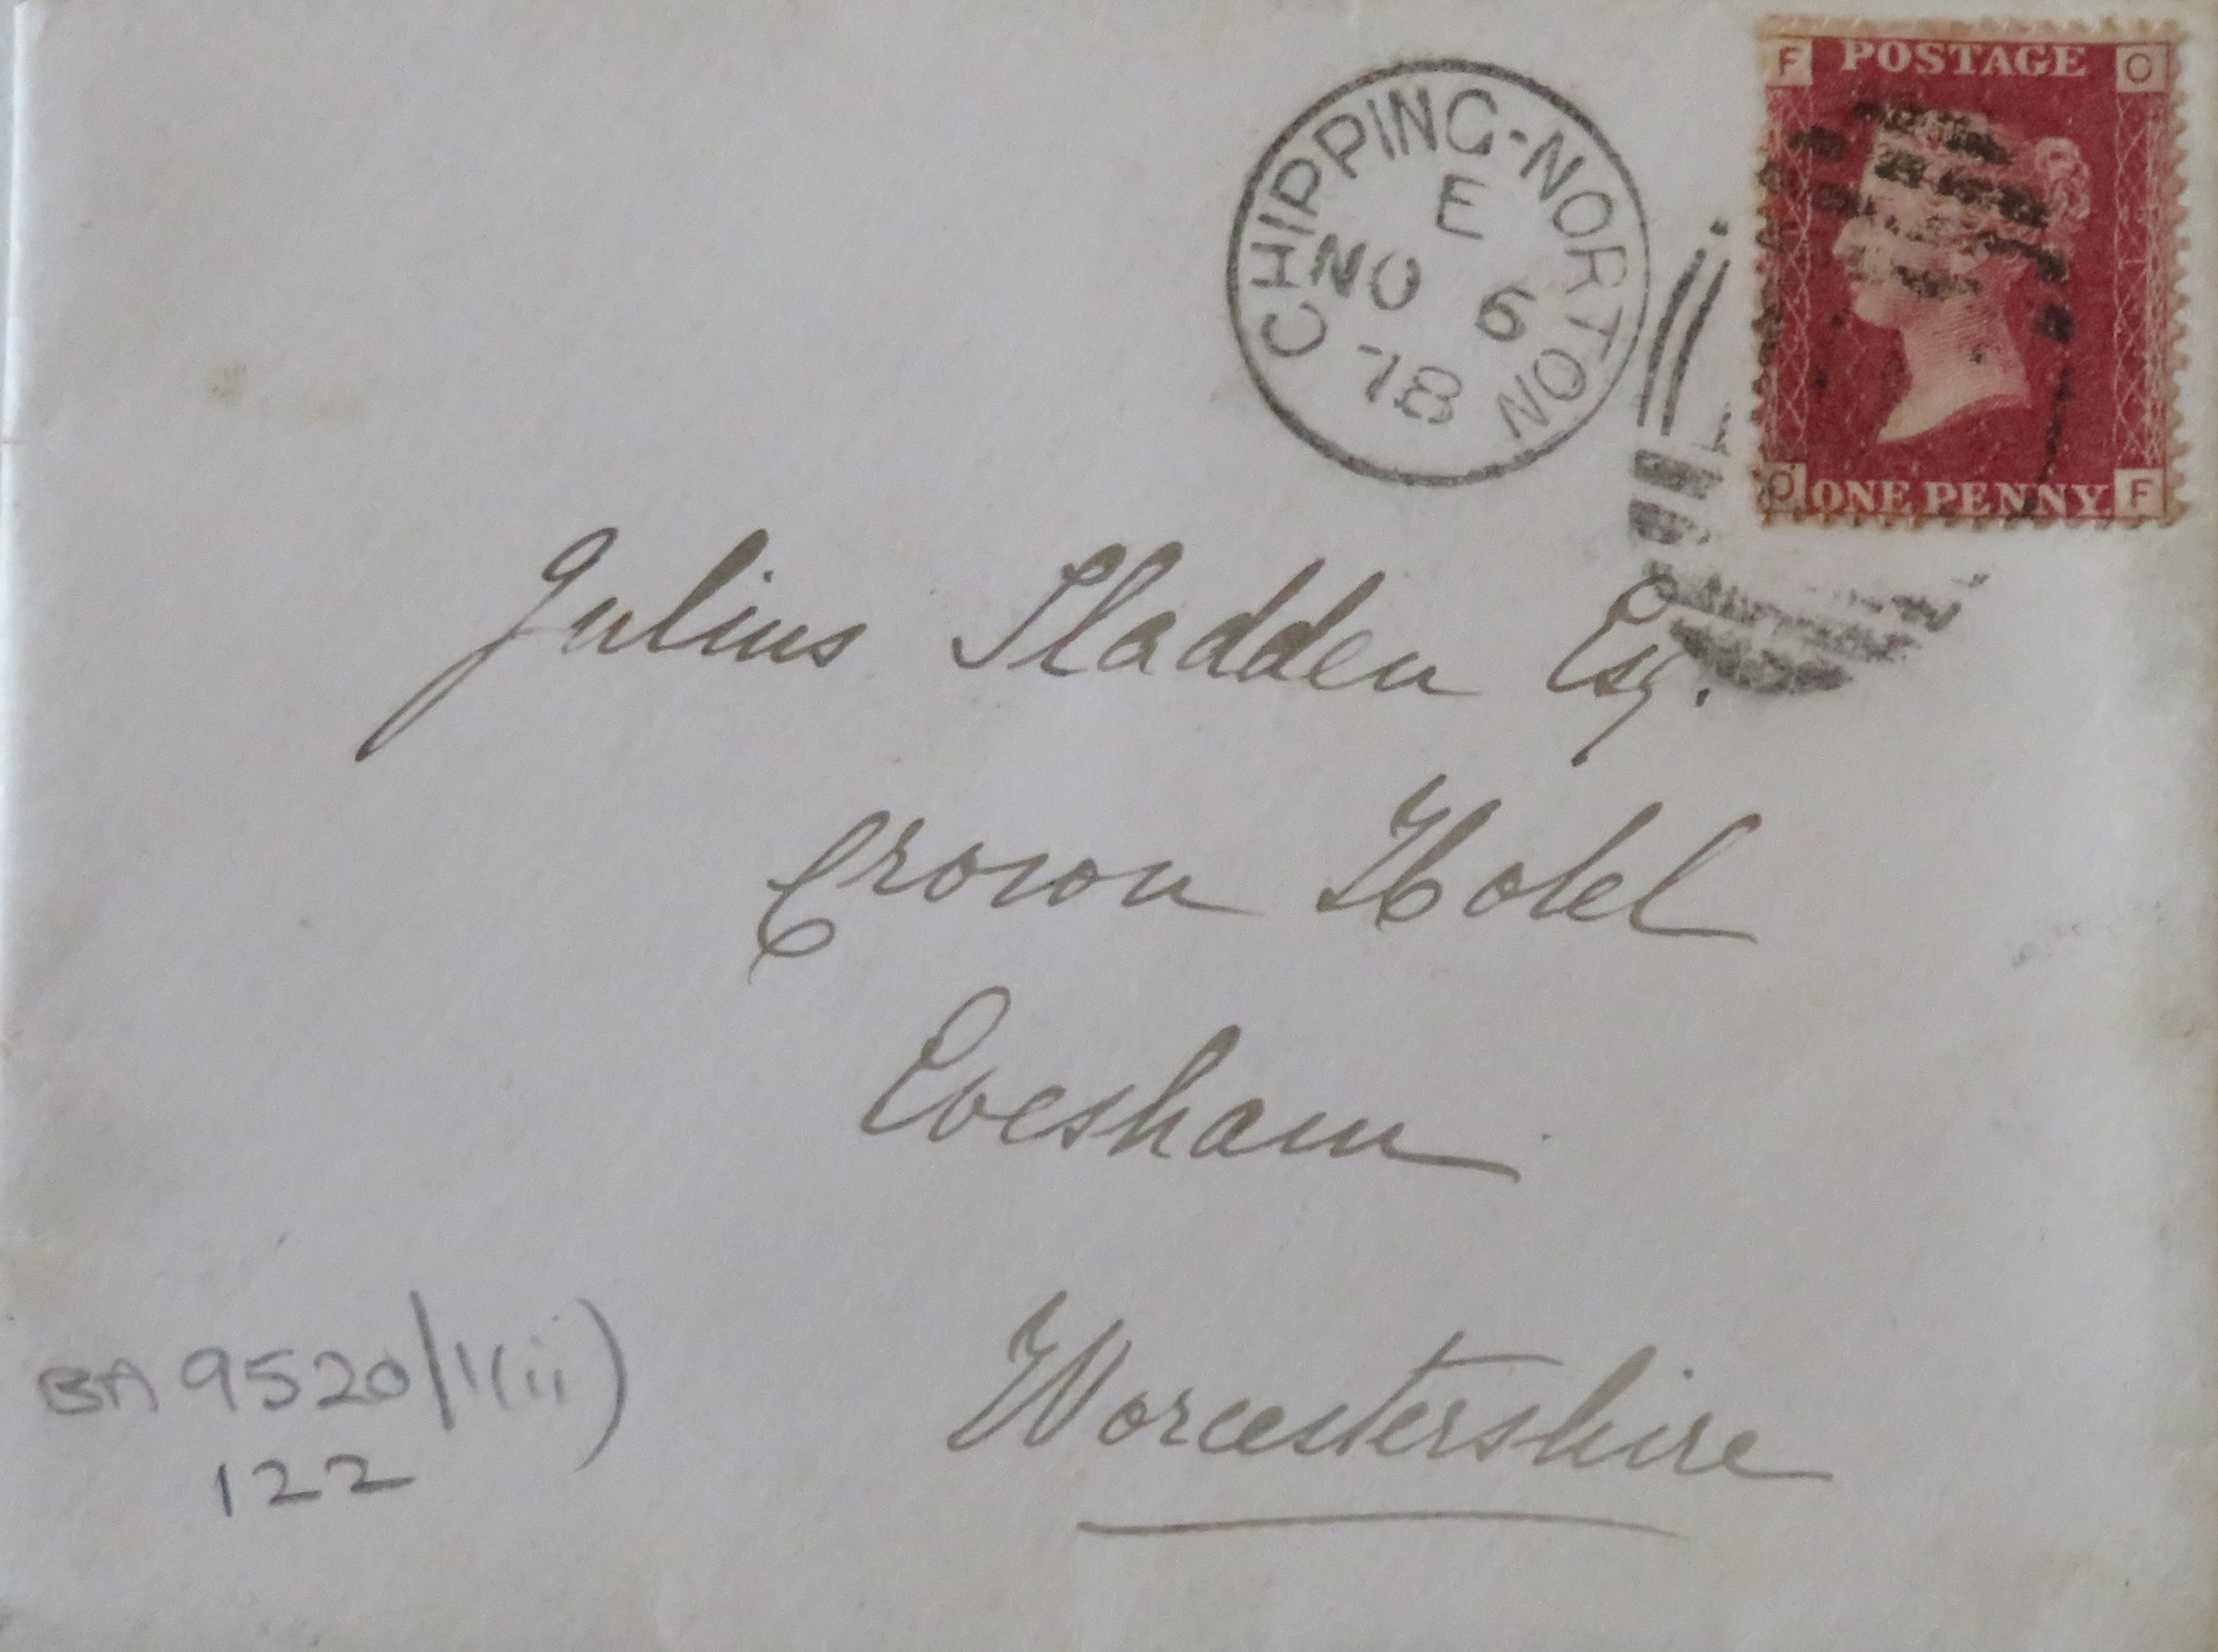 F POSTAGE O
CHIPPING-NORTON
E
NO 6
78
O ONE PENNY F
Julius Sladden Esq.
Crown Hotel
Evesham
Worcestershire
BA 9520/1(ii)
122